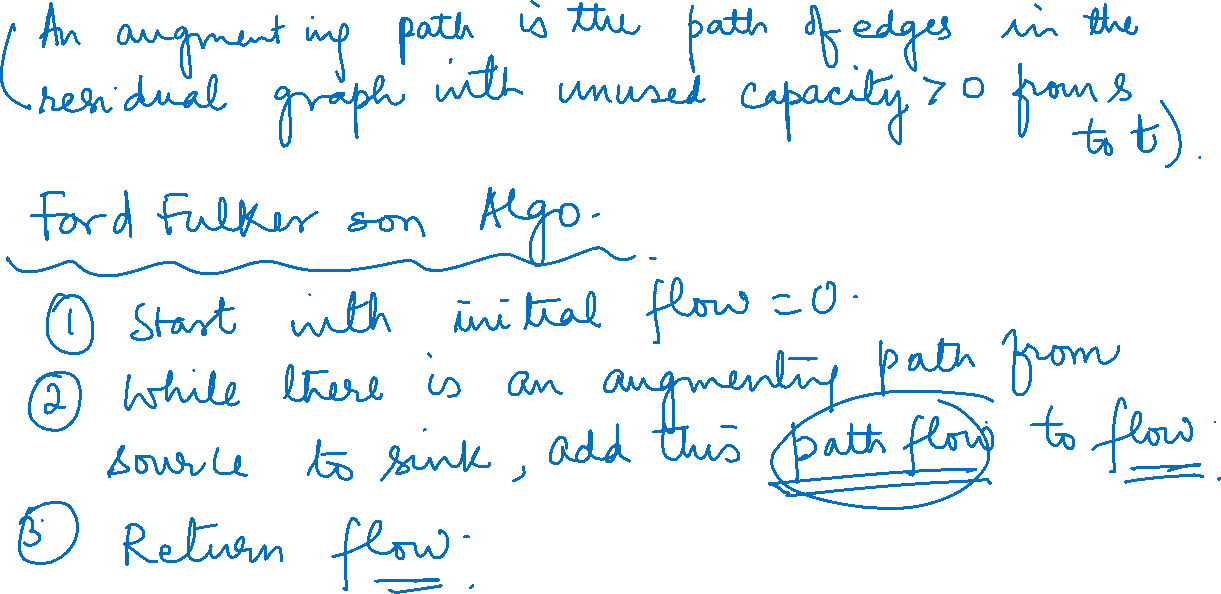 (An augmenting path is the path of edges in the
residual graph with unused capacity > 0 from s
to t).
Ford Fulkerson Algo.
① Start with initial flow = 0.
② While there is an augmenting path from
source to sink, add this path flow to flow.
③ Return flow.